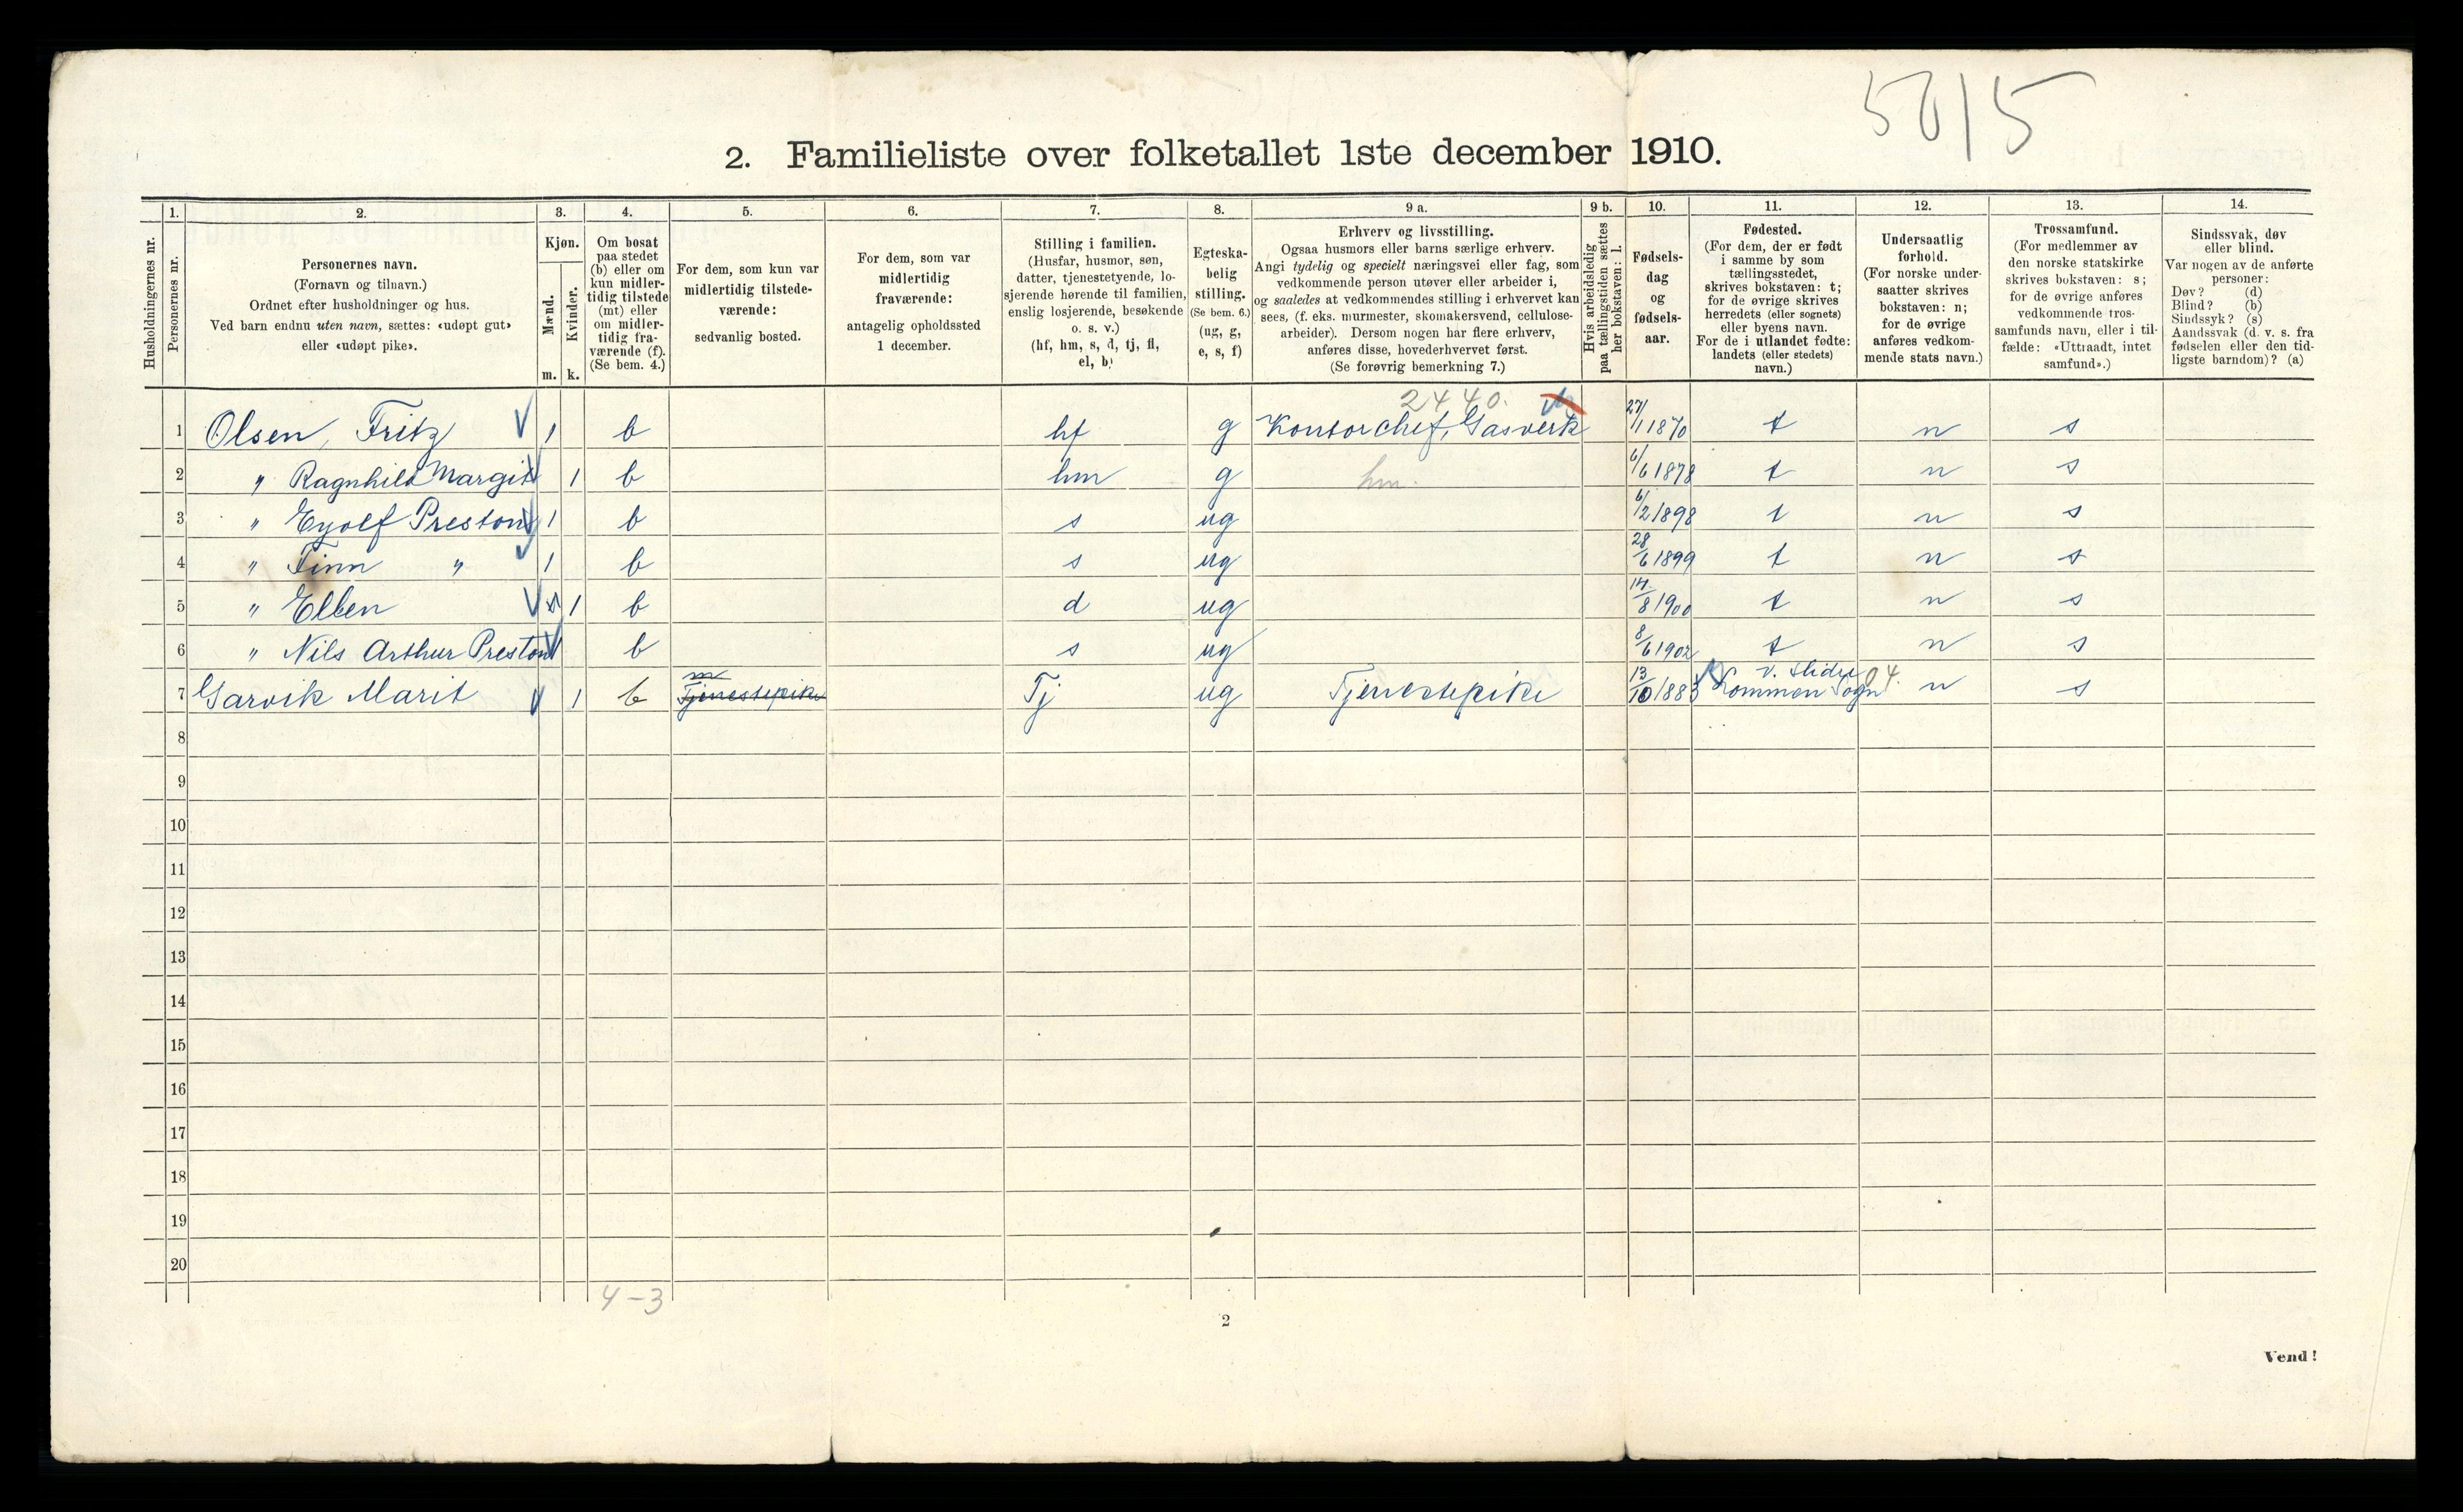 5015
2. Familieliste over folketallet 1ste december 1910.
Husholdningernes nr.
1.
Personernes nr.
2.
Personernes navn.
(Fornavn og tilnavn.)
Ordnet efter husholdninger og hus.
Ved barn endnu uten navn, sættes: «udøpt gut»
eller «udøpt pike».
3.
Kjøn.
Mænd.
Kvinder.
m. k.
4.
Om bosat
paa stedet
(b) eller om
kun midler-
tidig tilstede
(mt) eller
om midler-
tidig fra-
værende (f).
(Se bem. 4.)
5.
For dem, som kun var
midlertidig tilstede-
værende:
sedvanlig bosted.
6.
For dem, som var
midlertidig
fraværende:
antagelig opholdssted
1 december.
7.
Stilling i familien.
(Husfar, husmor, søn,
datter, tjenestetyende, lo-
sjerende hørende til familien,
enslig losjerende, besøkende
o. s. v.)
(hf, hm, s, d, tj, fl,
el, b)
8.
Egteska-
belig
stilling.
(Se bem. 6.)
(ug, g,
e, s, f)
9 a.
Erhverv og livsstilling.
Ogsaa husmors eller barns særlige erhverv.
Angi tydelig og specielt næringsvei eller fag, som
vedkommende person utøver eller arbeider i,
og saaledes at vedkommendes stilling i erhvervet kan
sees, (f. eks. murmester, skomakersvend, cellulose-
arbeider). Dersom nogen har flere erhverv,
anføres disse, hovederhvervet først.
(Se forøvrig bemerkning 7.)
9 b.
Hvis arbeidsledig
paa tællingstiden sættes
her bokstaven: l.
10.
Fødsels-
dag
og
fødsels-
aar.
11.
Fødested.
(For dem, der er født
i samme by som
tællingsstedet,
skrives bokstaven: t;
for de øvrige skrives
herredets (eller sognets)
eller byens navn.
For de i utlandet fødte:
landets (eller stedets)
navn.)
12.
Undersaatlig
forhold.
(For norske under-
saatter skrives
bokstaven: n;
for de øvrige
anføres vedkom-
mende stats navn.)
13.
Trossamfund.
(For medlemmer av
den norske statskirke
skrives bokstaven: s;
for de øvrige anføres
vedkommende tros-
samfunds navn, eller i til-
fælde: «Uttraadt, intet
samfund».)
14.
Sindssvak, døv
eller blind.
Var nogen av de anførte
personer:
Døv? (d)
Blind? (b)
Sindssyk? (s)
Aandssvak (d. v. s. fra
fødselen eller den tid-
ligste barndom)? (a)
2440.
1 Olsen, Fritz 1 b hf g Kontorchef, Gasverk 27/1 1870 t n s
2 " Ragnhild Margit 1 b hm g hm. 6/6 1878 t n s
3 " Eyolf Preston 1 b s ug 6/2 1898 t n s
4 " Finn " 1 b s ug 28/6 1899 t n s
5 " Ellen 1 b d ug 14/8 1900 t n s
6 " Nils Arthur Preston 1 b s ug 8/6 1902 t n s
v. Slidre 04.
7 Garvik Marit 1 b Tjenestepike Tj ug Tjenestepike 13/10 1883 Lommen Sogn n s
8
9
10
11
12
13
14
15
16
17
18
19
20
4-3
2
Vend!